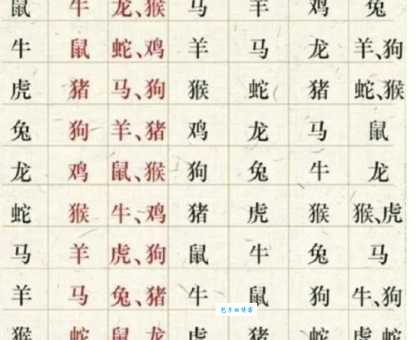 鼠 牛 龙、猴 马 羊 鸡 兔
牛 鼠 蛇、鸡 羊 马 龙 羊、狗
虎 猪 马、狗 猴 蛇 猪 蛇、猴
兔 狗 羊、猪 鸡 龙 马 鼠
龙 鸡 鼠、猴 狗 兔 牛 龙
蛇 猴 牛、鸡 猪 虎 猴 猴、虎
马 羊 虎、狗 鼠 牛 兔 马
羊 马 兔、猪 牛 鼠 狗 牛、狗
猴 蛇 鼠、龙 虎 猪 蛇 虎、蛇